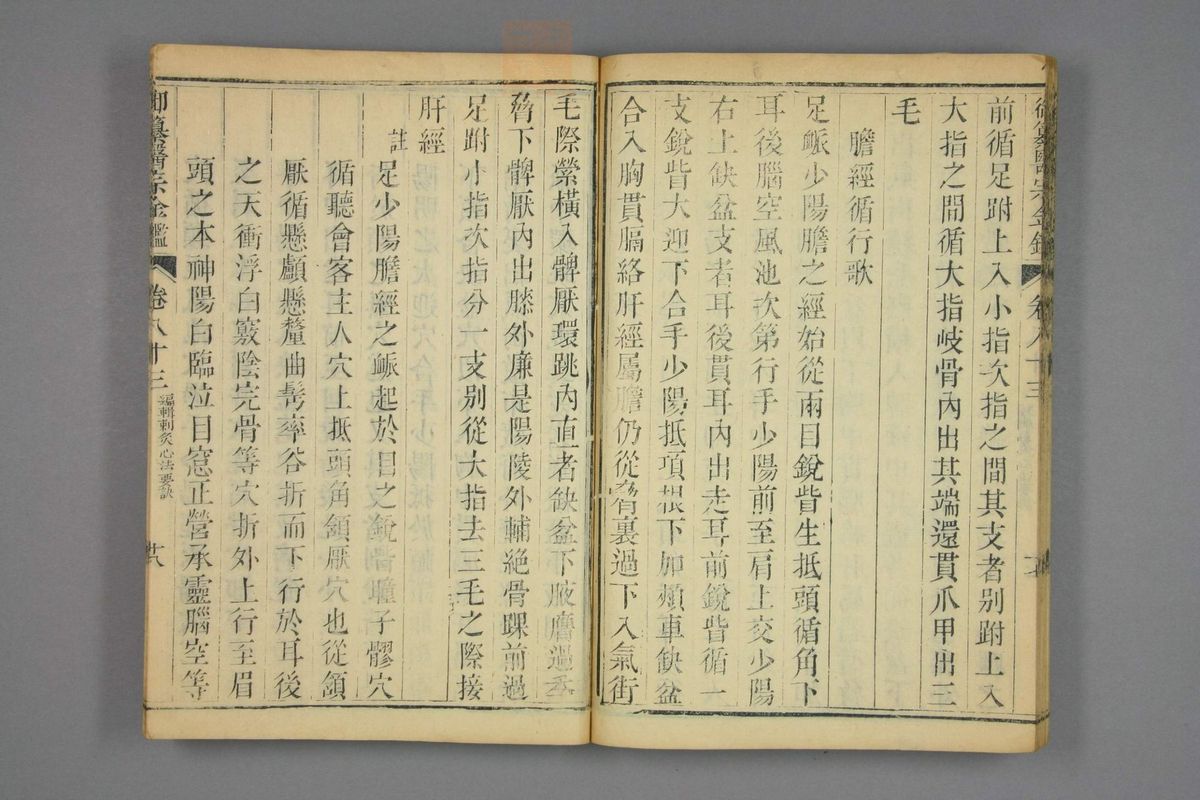 御纂醫宗金鑑 卷八十三
前循足跗上入小指次指之間其支者別跗上入
大指之間循大指岐骨內出其端還貫爪甲出三
毛
膽經循行歌
足脈少陽膽之經始從兩目銳眥生抵頭循角下
耳後腦空風池次第行手少陽前至肩上交少陽
右上缺盆支者耳後貫耳內出走耳前銳眥循一
支銳眥大迎下合手少陽抵項根下加頰車缺盆
合入胸貫膈絡肝經屬膽仍從脅裏過下入氣街
毛際縈橫入髀厭環跳內直者缺盆下腋膺過季
脅下髀厭內出膝外廉是陽陵外輔絕骨踝前過
足跗小指次指分一支別從大指去三毛之際接
肝經
註 足少陽膽經之脈起於目之銳眥瞳子髎穴
循聽會客主人穴上抵頭角頷厭穴也從頷
厭循懸顱懸釐曲髩率谷折而下行於耳後
之天衝浮白竅陰完骨等穴折外上行至眉
頭之本神陽白臨泣目窓正營承靈腦空等
御纂醫宗金鑑 卷八十三 編輯刺灸心法要訣 廿八